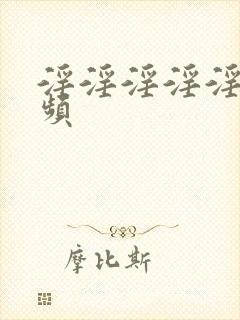 淫淫淫淫淫
頻
摩比斯